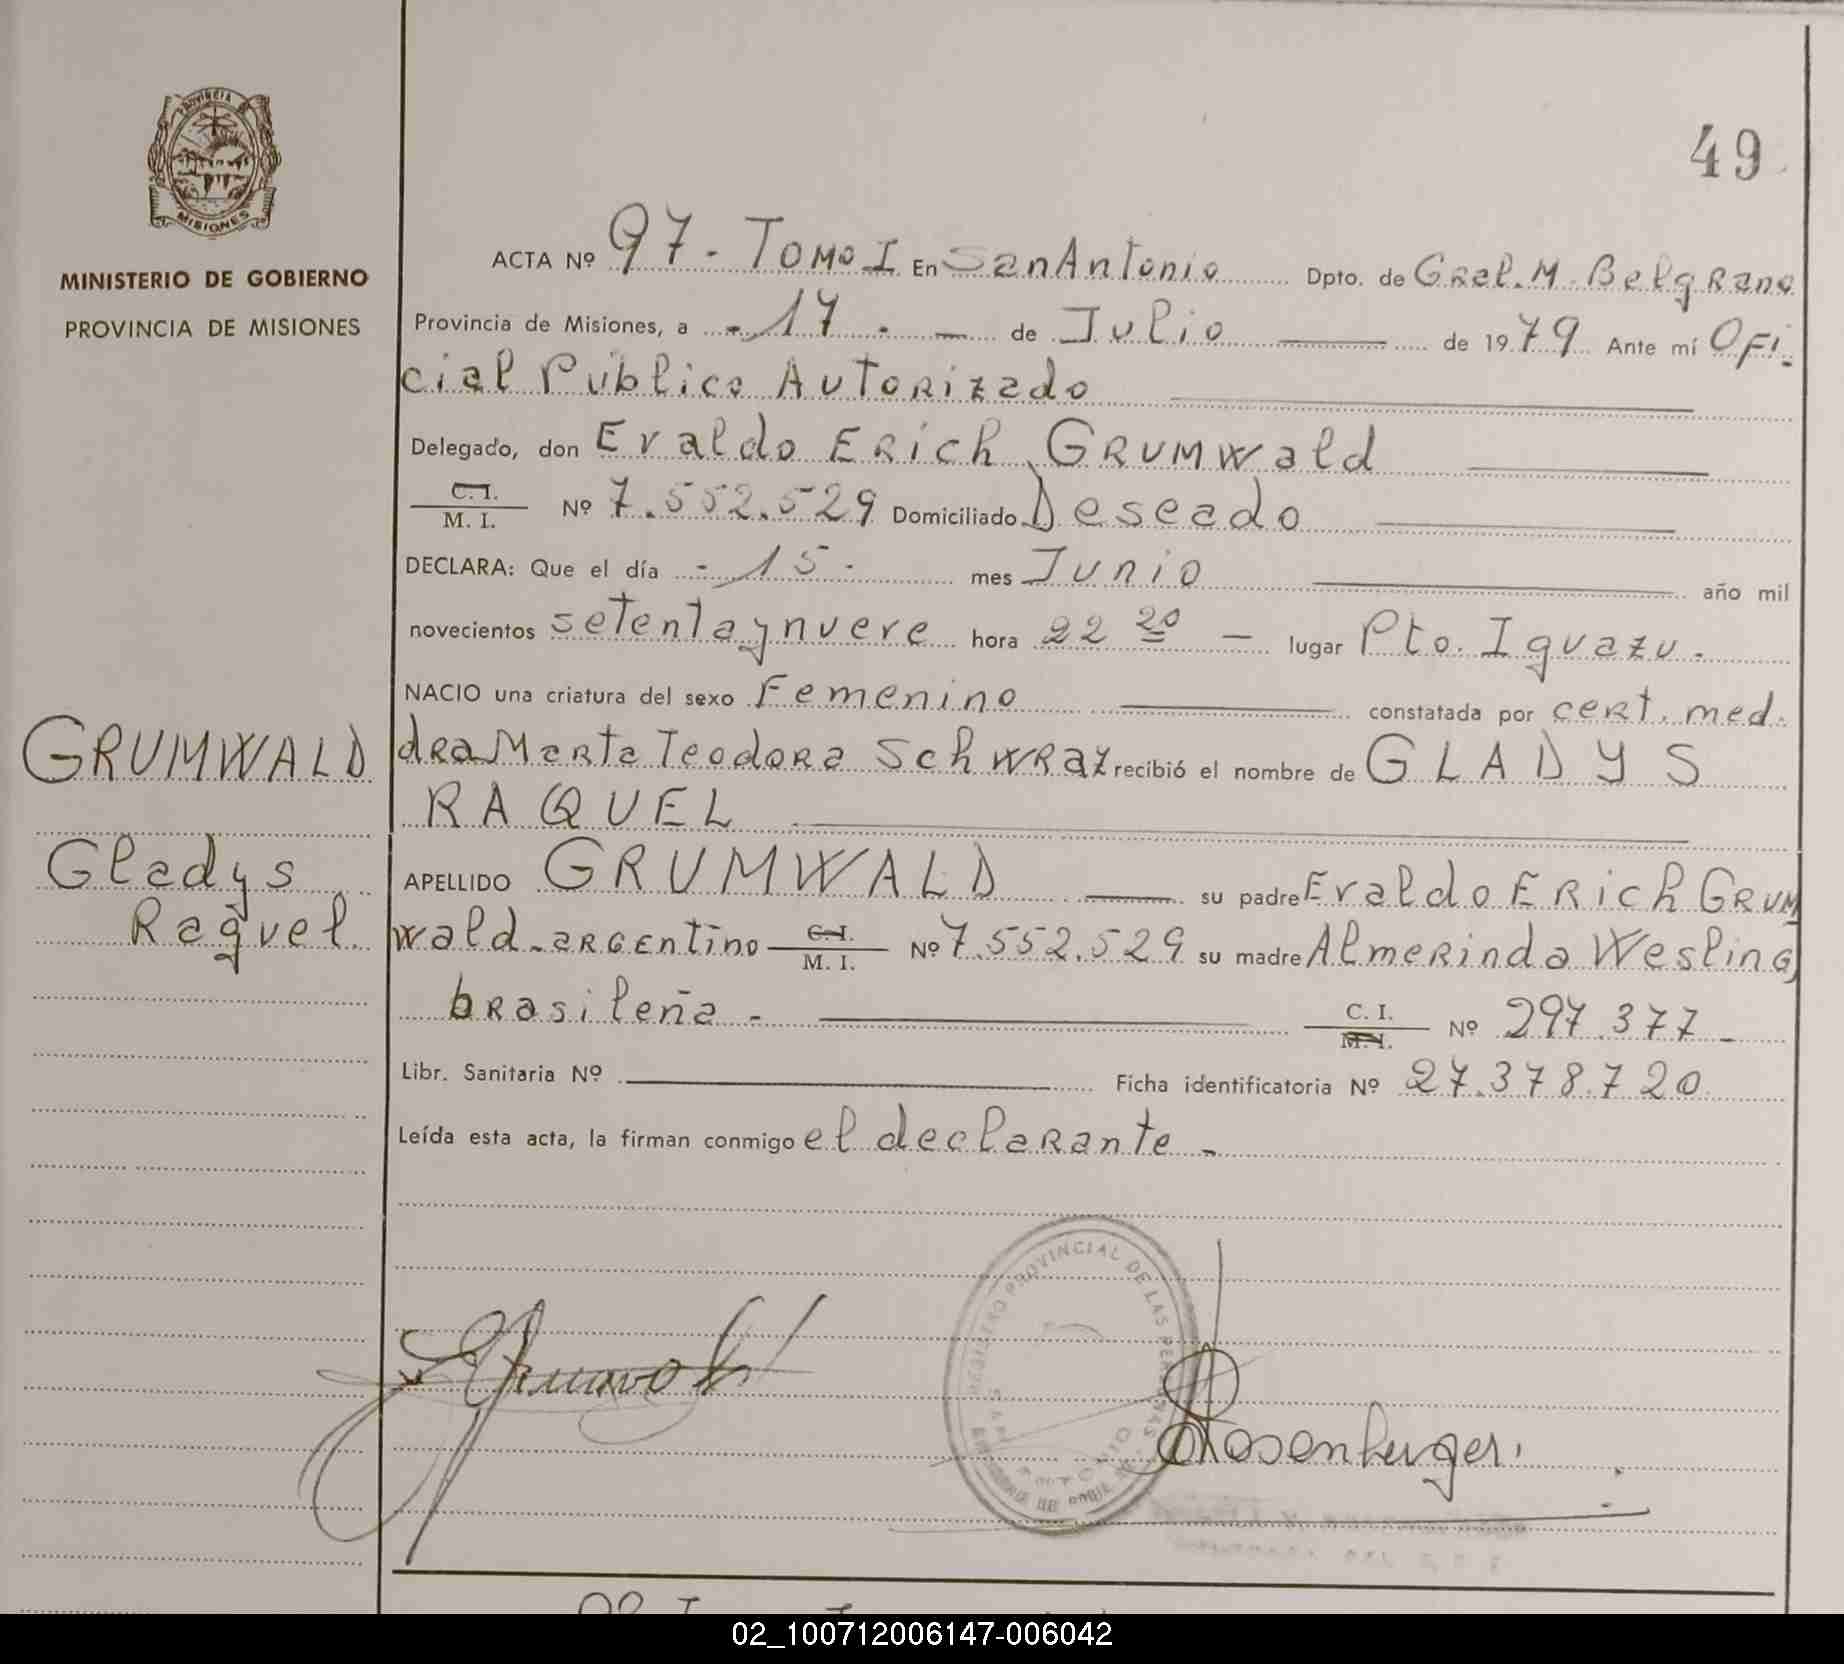 49
PROVINCIA
MISIONES
MINISTERIO DE GOBIERNO
PROVINCIA DE MISIONES
ACTA Nº 97 - Tomo I En San Antonio Dpto. de Gral. M. Belgrano
Provincia de Misiones, a - 17 - de Julio de 1979 Ante mí Ofi-
cial Público Autorizado
Delegado, don Evaldo Erich Grumwald
C. I.
M. I. Nº 7.552.529 Domiciliado Deseado
DECLARA: Que el día - 15 - mes Junio año mil
novecientos setenta y nueve hora 22 20 - lugar Pto. Iguazu.
NACIO una criatura del sexo Femenino constatada por cert. med.
dra Marta Teodora Schwraz recibió el nombre de GLADYS
RAQUEL
GRUMWALD
Gladys
Raquel
APELLIDO GRUMWALD su padre Evaldo Erich Grum
wald - argentino C. I. M. I. Nº 7.552.529 su madre Almerinda Wesling
brasileña - C. I. M. I. Nº 297.377 -
Libr. Sanitaria Nº Ficha identificatoria Nº 27.378.720
Leída esta acta, la firman conmigo el declarante -
REGISTRO PROVINCIAL DE LAS PERSONAS
SAN ANTONIO
Rosenberger
02_100712006147-006042